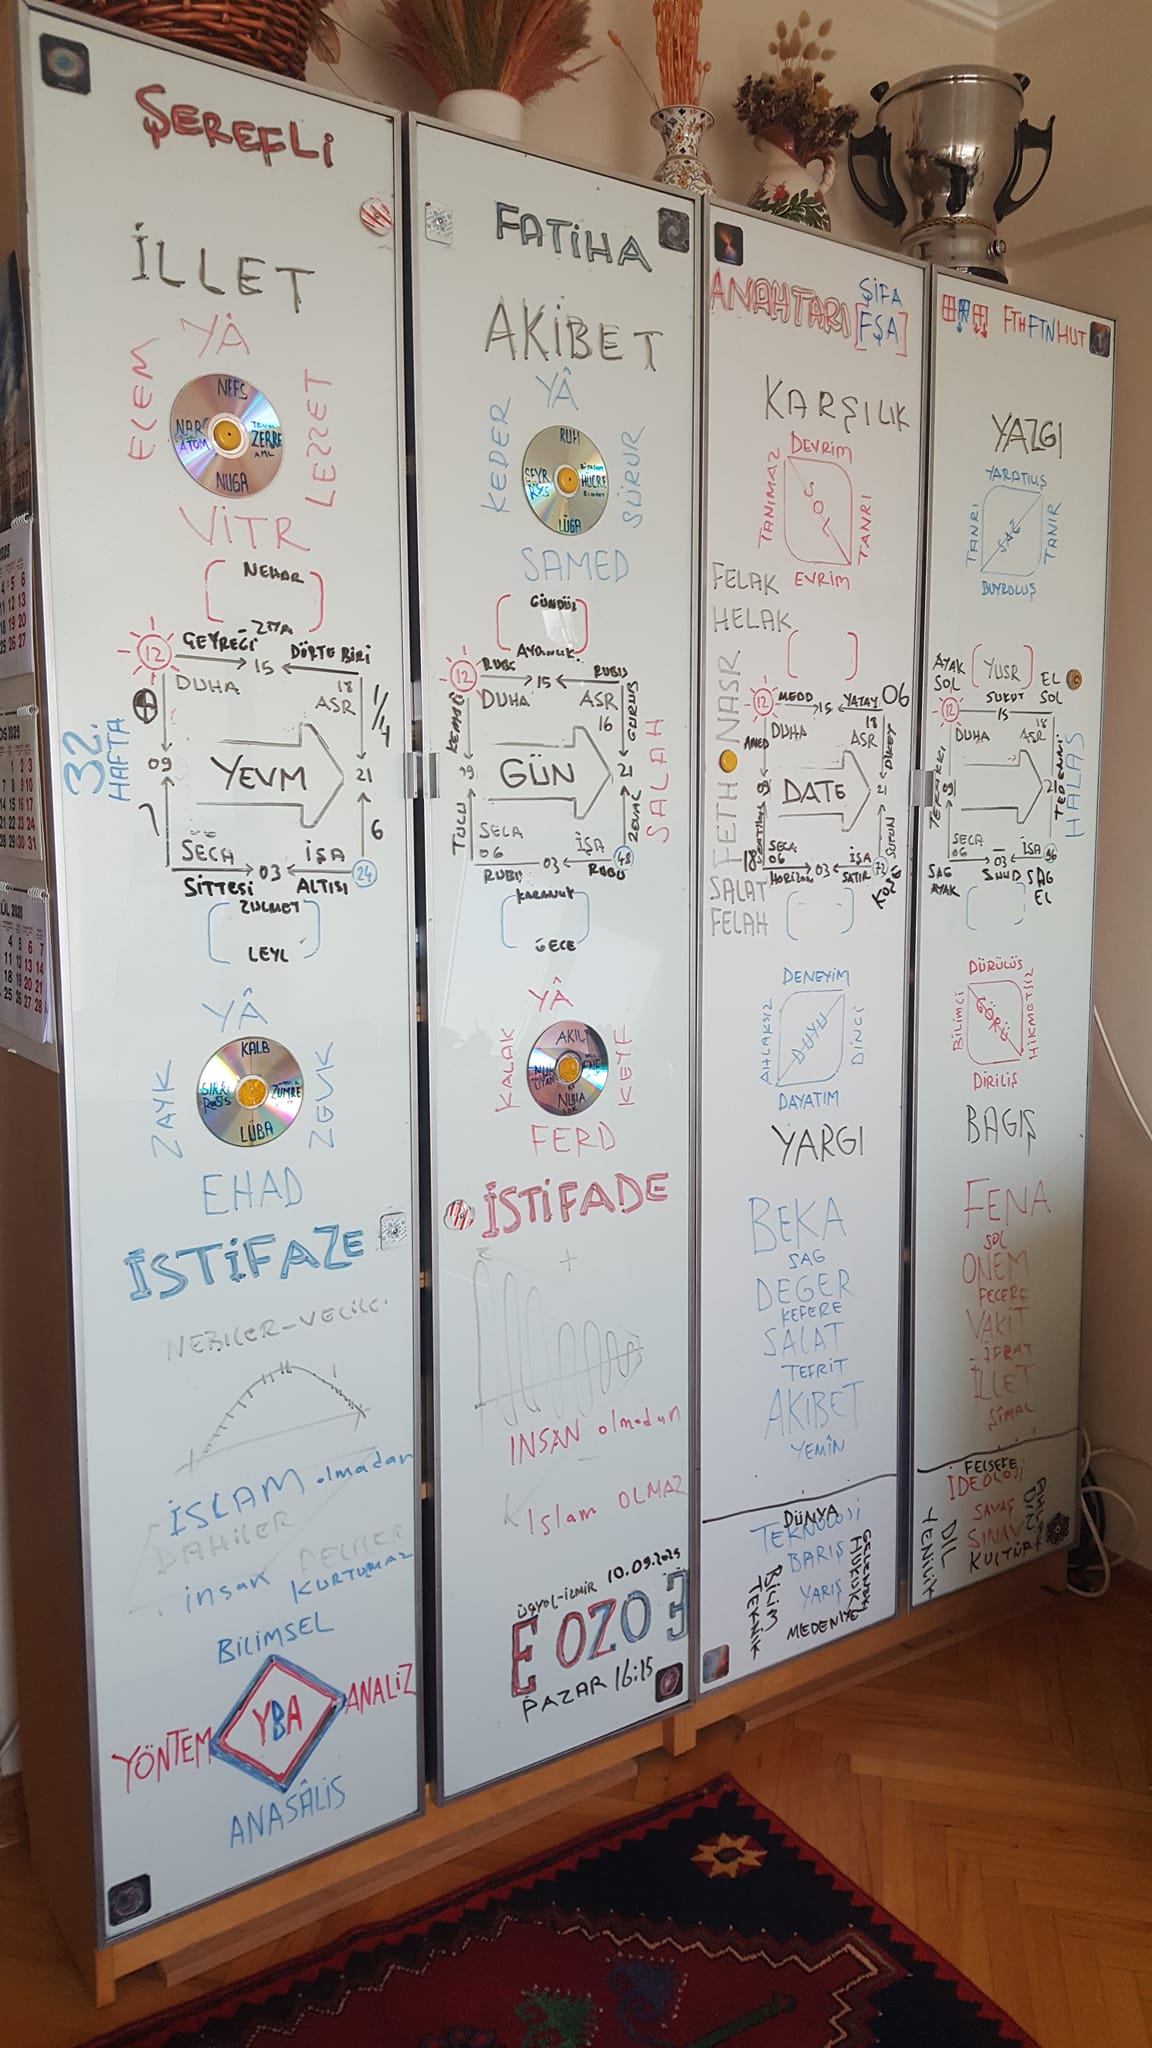 ŞEREFLİ
İLLET
YÂ
ELEM
LEZZET
NEFS
ZERRE
ATOM
NUGA
VİTR
NEHAR
12
15
DÖRTE BİRİ
DUHA
18
ASR
1/4
32.
HAFTA
09
YEVM
21
6
SECA
İŞA
SİTTESİ
03
ALTISI
24
ZULMET
LEYL
YÂ
ZAYK
ZEVK
KALB
ZÜMRE
LÜBA
EHAD
İSTİFAZE
NEBİLER-VELİLE.
İSLAM olmadan
DAHİLER
DELİLER
insan KURTULMAZ
BİLİMSEL
YÖNTEM
YBA
ANALİZ
ANASÂLİS
FATİHA
AKİBET
YÂ
KEDER
SÜRUR
RUH
HÜCRE
LÜGA
SAMED
GÜNDÜZ
AYDINLIK
12
15
DUHA
ASR
16
09
GÜN
21
SALAH
TULU
SECA
06
İŞA
03
48
KARANLIK
GECE
YÂ
KALAK
KEYF
AKIL
NUHA
FERD
İSTİFADE
+
INSAN olmadan
Islam OLMAZ
ÜÇYOL-İZMİR 10.09.2025
E OZO 3
PAZAR 16:15
ANAHTARI
ŞİFA
[FŞA]
KARŞILIK
DEVRİM
TANIMAZ
SOL
TANRI
EVRİM
FELAK
HELAK
NASR
FETH
12
MEDD
15
YATAY
06
DUHA
18
ASR
DİKEY
DATE
21
SECA
06
HORIZON
03
İŞA
SATIR
72
SALAT
FELAH
DENEYİM
AHLAKSIZ
DUYU
DİNCİ
DAYATIM
YARGI
BEKA
SAG
DEGER
KEFERE
SALAT
TEFRİT
AKIBET
YEMİN
DÜNYA
TEKNOLOJİ
BARIŞ
YARIŞ
BİLİM
TEKNİK
HUKUK
FTHFTNHUT
YAZGI
YARATILIŞ
TANRI
SAG
TANIR
BUYRULUŞ
AYAK
SOL
YUSR
EL
SOL
12
15
18
DUHA
ASR
HALAS
SECA
06
03
İŞA
96
SAG
AYAK
SAG
EL
DÜRÜLÜŞ
BİLİMCİ
GÖRÜ
HİKMETSİZ
DİRİLİŞ
BAGIŞ
FENA
SOL
ÖNEM
FECERE
VAKİT
İFRAT
İLLET
ŞİMAL
FELSEFE
İDEOLOJİ
SAVAŞ
SINAV
KÜLTÜR
DİL